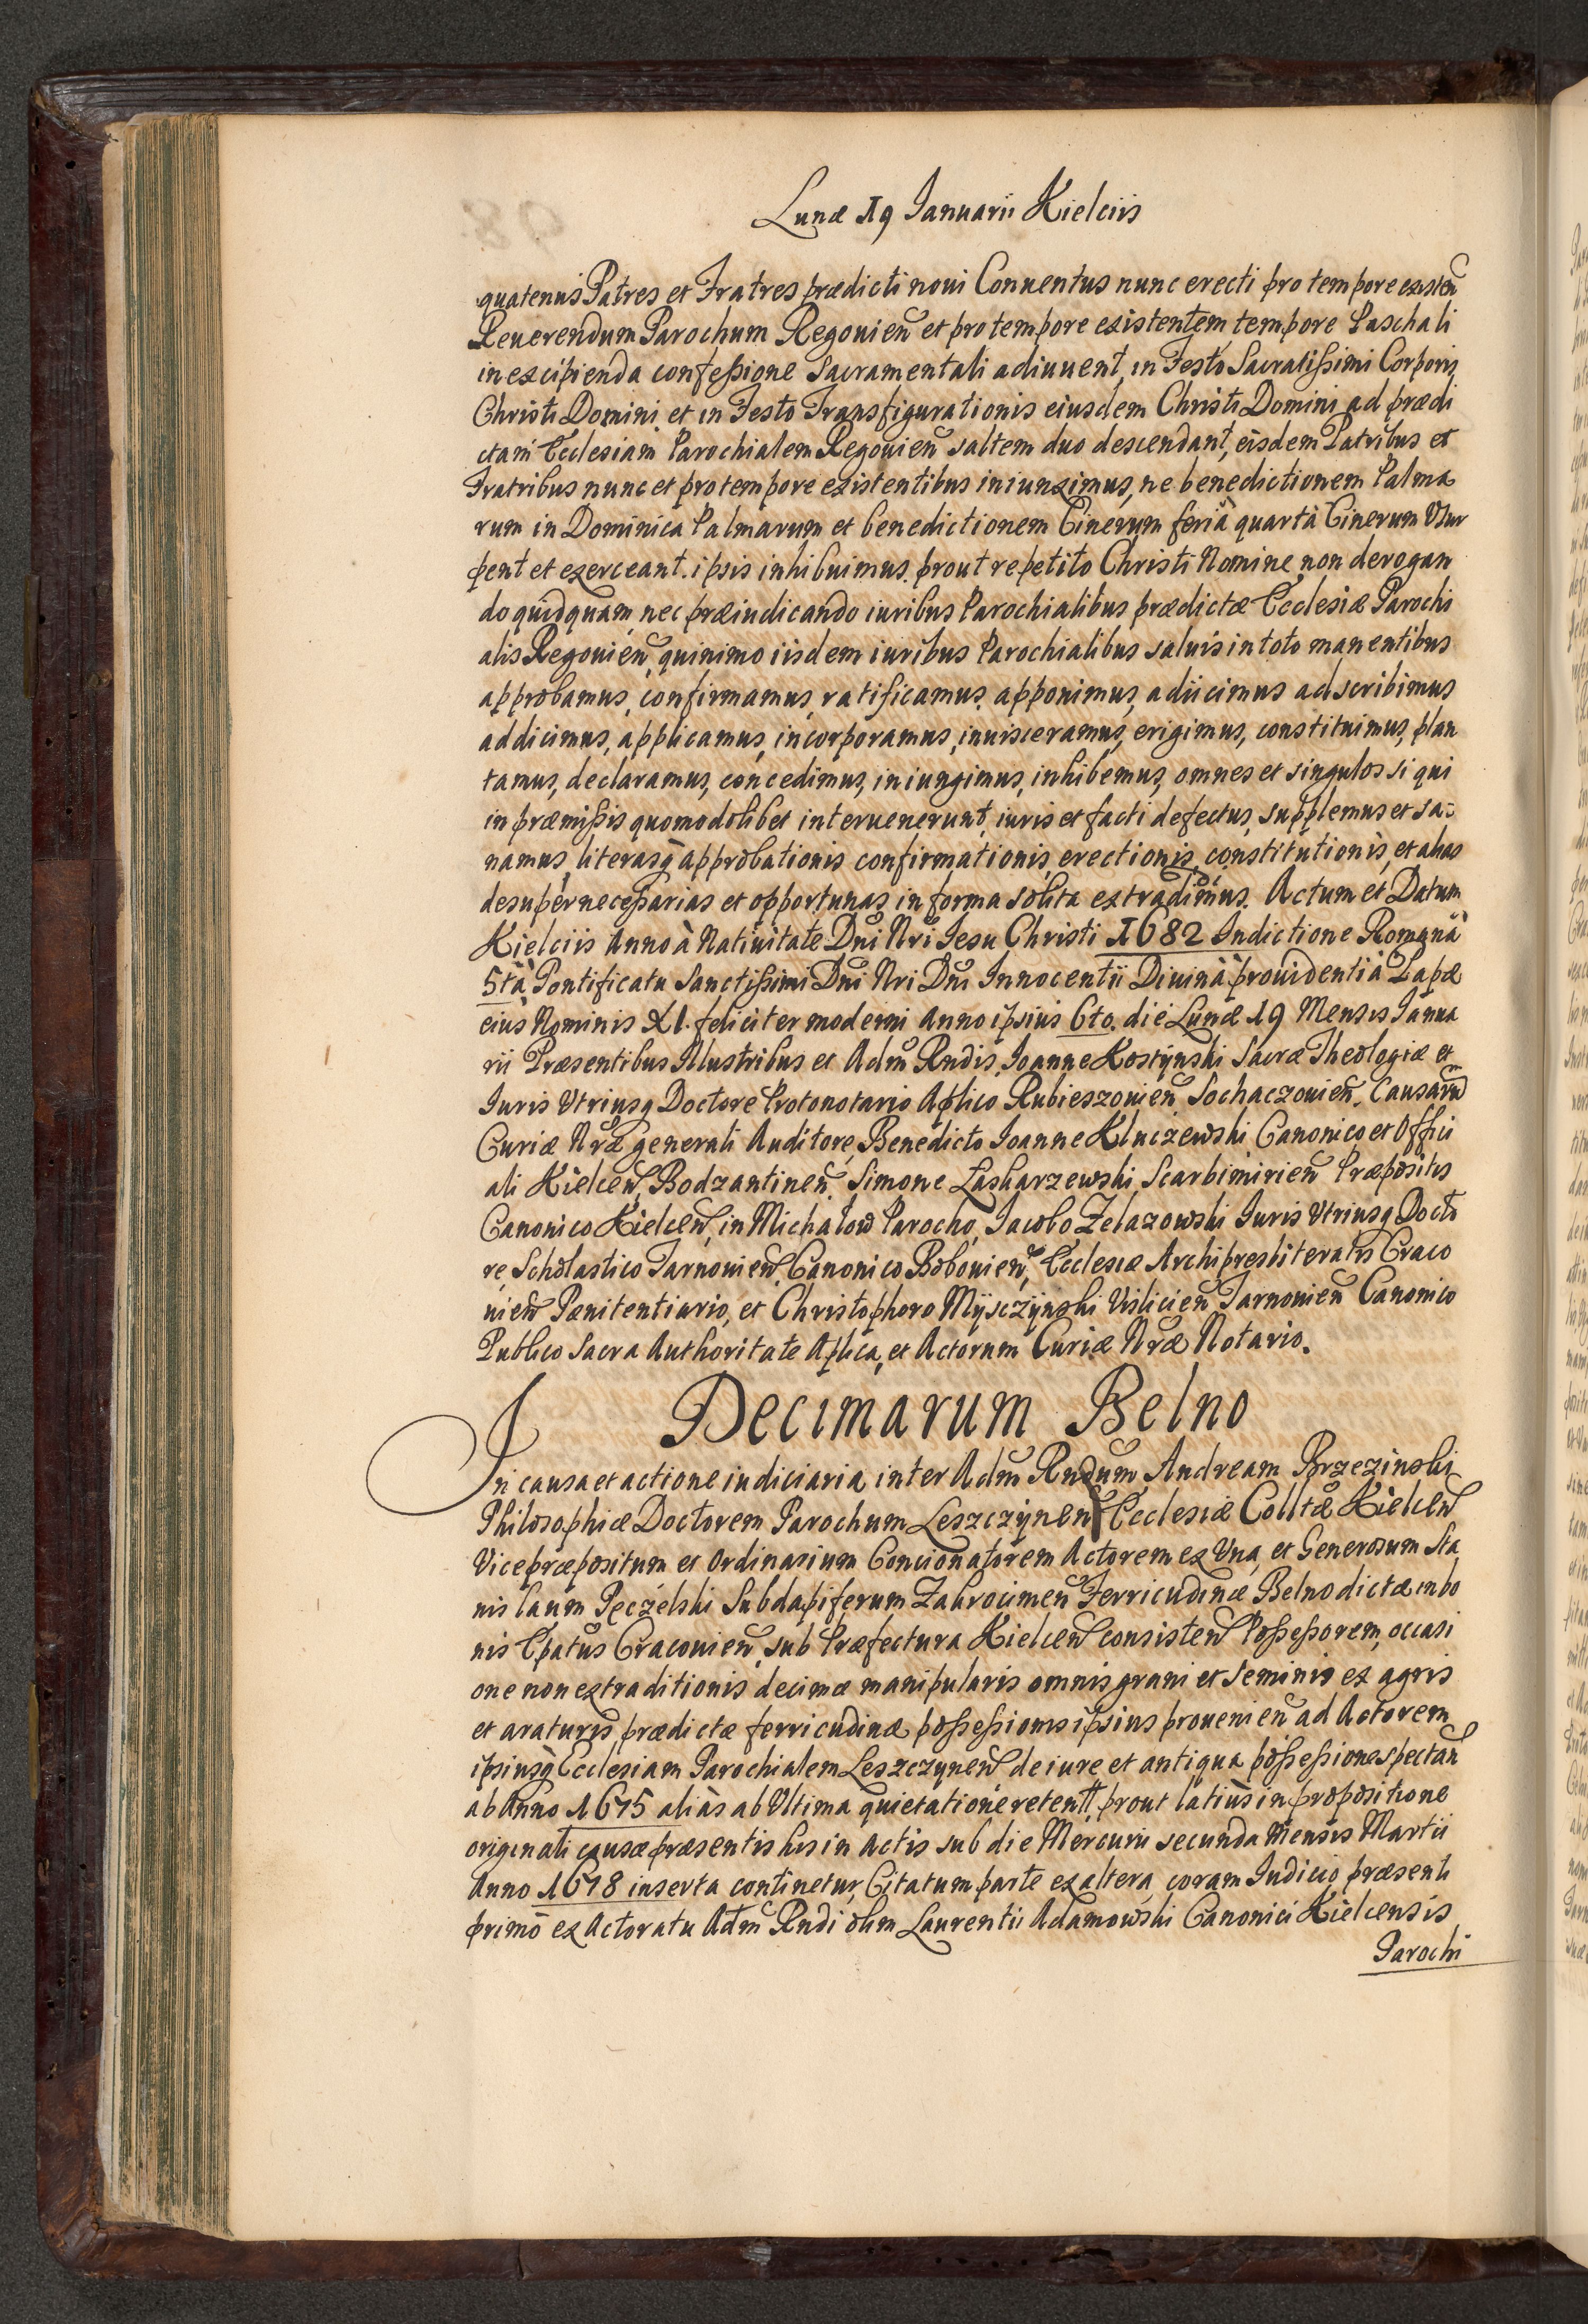 Lunæ 19 Ianuarii Kielciis
quatenus Patres et Fratres prædicti noui Conuentus nunc erecti pro tempore existeñ
Reuerendum Parochum Regouieñ et pro tempore existentem tempore Paschali
in excipienda confeßione Sacramentali adiuuent, in Festo Sacratißimi Corporis
Christi Domini et in Festo Transfigurationis eiusdem Christi Domini ad prædi
ctam Ecclesiam Parochialem Regouieñ saltem duo descendant, eisdem Patribus et
Fratribus nunc et pro tempore existentibus iniunximus, ne benedictionem Palma
rum in Dominica Palmarum et benedictionem Cinerum feriâ quartâ Cinerum Vsur
pent et exerceant. ipsis inhibuimus. prout repetito Christi Nomine non derogan
do quidquam, nec præiudicando iuribus Parochialibus prædictæ Ecclesiæ Parochi
alis Regouieñ, quinimo iisdem iuribus Parochialibus saluis in toto manentibus
approbamus, confirmamus, ratificamus. apponimus, adiicimus adscribimus
addicimus, applicamus, incorporamus, inuisceramus, erigimus, constituimus, plan
tamus, declaramus, concedimus, iniungimus, inhibemus, omnes et singulos si qui
in præmißis quomodolibet interuenerunt, iuris et facti defectus, supplemus et sa:
namus, literasq̃ approbationis confirmationis, erectionis, constitutionis, et alias
desuper neceßarias et opportunas in forma solita extradimus. Actum et Datum
Kielciis Anno à Natiuitate Dñi Nri Iesu Christi 1682 Indictione Romanâ
5tâ Pontificatu Sanctißimi Dñi Nri Dñi Innocentii Diuinâ prouidentiâ Papæ
eius Nominis XI. feliciter moderni Anno ipsius 6to. die Lunæ 19 Mensis Ianua
rii Præsentibus Illustribus et Adm̃ Rndis, Ioanne Kostÿnski Sacræ Theologiæ et
Iuris Vtriusq Doctore Protonotario Aplico Rubieszouieñ, Sochaczouieñ, Causarũ
Curiæ Nræ generali Auditore, Benedicto Ioanne Kluczewski Canonico et Offici
ali Kielceñ, Bodzantineñ, Simone Laskarzewski, Scarbimirieñ Præposito
Canonico Kielceñ, in Michałow Parocho, Iacobo Zelazowski Iuris Vtriusq Docto
re, Scholastico Tarnouieñ, Canonico Bobouieñ, Ecclesiæ Archipresbiteralis Craco
uieñ Pænitentiario, et Christophoro Mÿsczÿnski Vislicieñ Tarnouieñ Canonico
Publico Sacra Authoritate Aplica, et Actorum Curiæ Nræ Notario.
Decimarum Belno
In causa et actione iudiciaria inter Adm̃ Rndum Andream Brzezinski
Philosophiæ Doctorem Parochum Leszczÿneñ Ecclesiæ Colltæ Kielceñ
Vicepræpositum et Ordinarium Concionatorem Actorem ex Vna, et Generosum Sta
nislaum Pęczelski Subdapiferum Zakrocimeñ Ferricudinæ Belno dictæ in bo
nis Epatus Cracouieñ, sub Præfectura Kielceñ consisteñ Poßeßorem, occasi
one non extraditionis decimæ manipularis omnis grani et seminis ex agris
et araturis prædictæ ferricudinæ poßeßionis ipsius prouenieñ ad Actorem
ipsiusq̃ Ecclesiam Parochialem Leszczyneñ de iure et antiqua poßeßione spectañ
ab Anno 1675 aliàs ab Vltima quietatione retentt, prout latiùs in propositione
originali causæ præsentis his in Actis sub die Mercurii secunda Mensis Martii
Anno 1678 inserta continetur, Citatum parte ex altera, coram Iudicio præsenti
primò ex Actoratu Adm̃ Rndi olim Laurentii Adamowski Canonici Kielcensis
Parochi